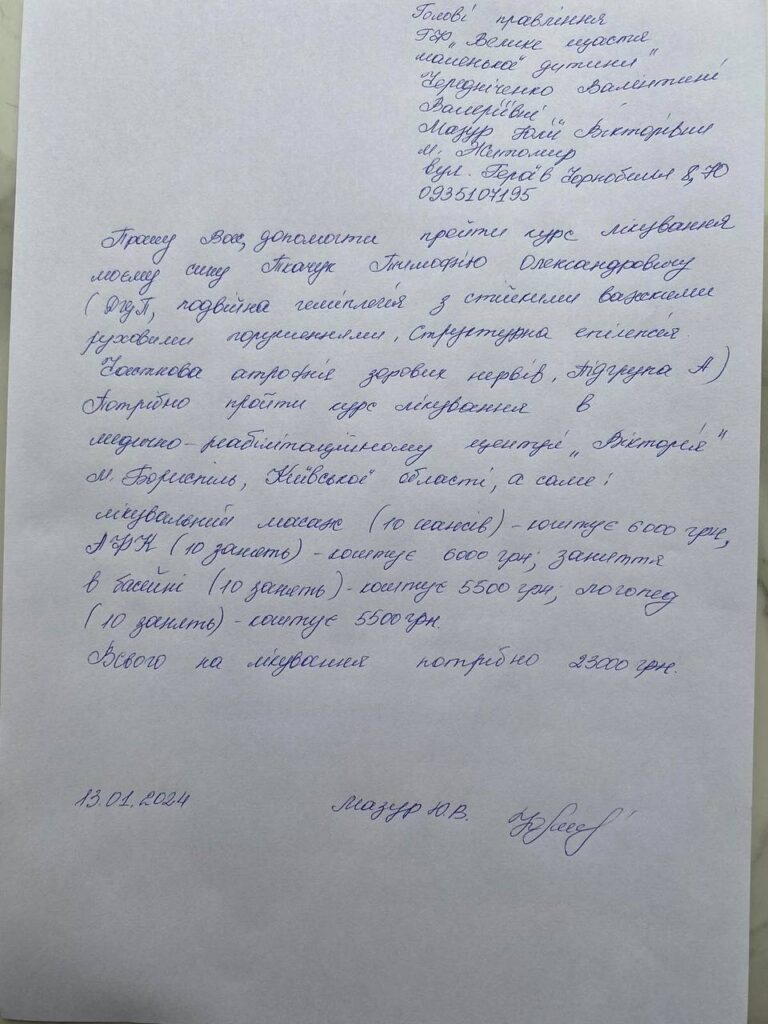 Голові правління
БФ „Велике щастя
маленької дитини"
Чередніченко Валентині
Валеріївні
Мазур Юлії Вікторівни
м. Житомир
вул. Героїв Чорнобиля 8, 70
0935107195
Прошу Вас, допомогти пройти курс лікування
моєму сину Ткачук Тимофію Олександровичу
(ДЦП, подвійна геміплегія з стійкими важкими
руховими порушеннями, Структурна епілепсія
Часткова атрофія зорових нервів, Підгрупа А)
Потрібно пройти курс лікування в
медично-реабілітаційному центрі „Вікторія"
м. Бориспіль, Київської області, а саме:
лікувальний масаж (10 сеансів) - коштує 6000 грн,
АФК (10 занять) - коштує 6000 грн; заняття
в басейні (10 занять) - коштує 5500 грн; логопед
(10 занять) - коштує 5500 грн.
Всього на лікування потрібно 23000 грн.
13.01.2024 Мазур Ю.В.